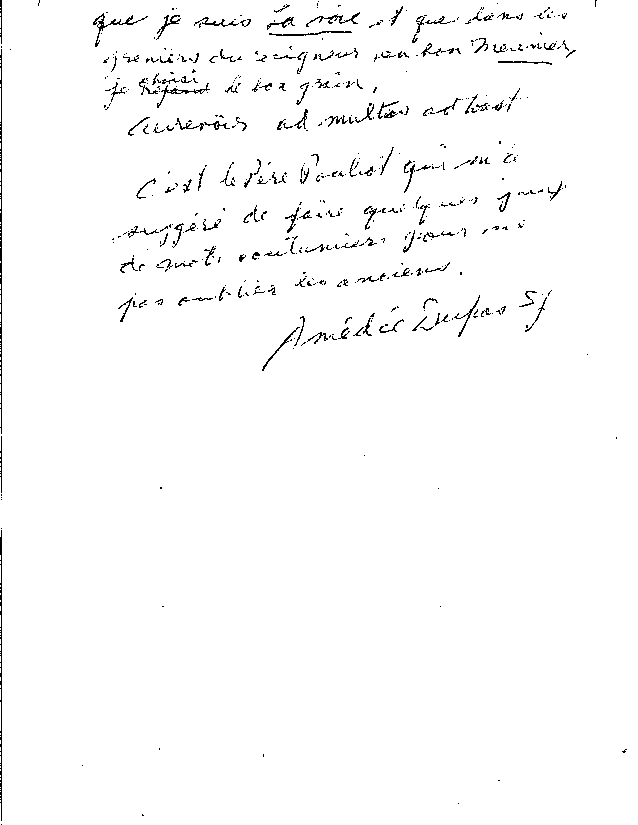 que je suis La voie et que dans les
greniers du seigneur, en bon Meunier,
je choisi le bon grain.
Aurevoir ad multos ad toast
C'est le Père Pouliot qui m'a
suggéré de faire quelques jeux
de mots coutumiers pour ne
pas oublier les anciens.
Amédée Dupas Sj